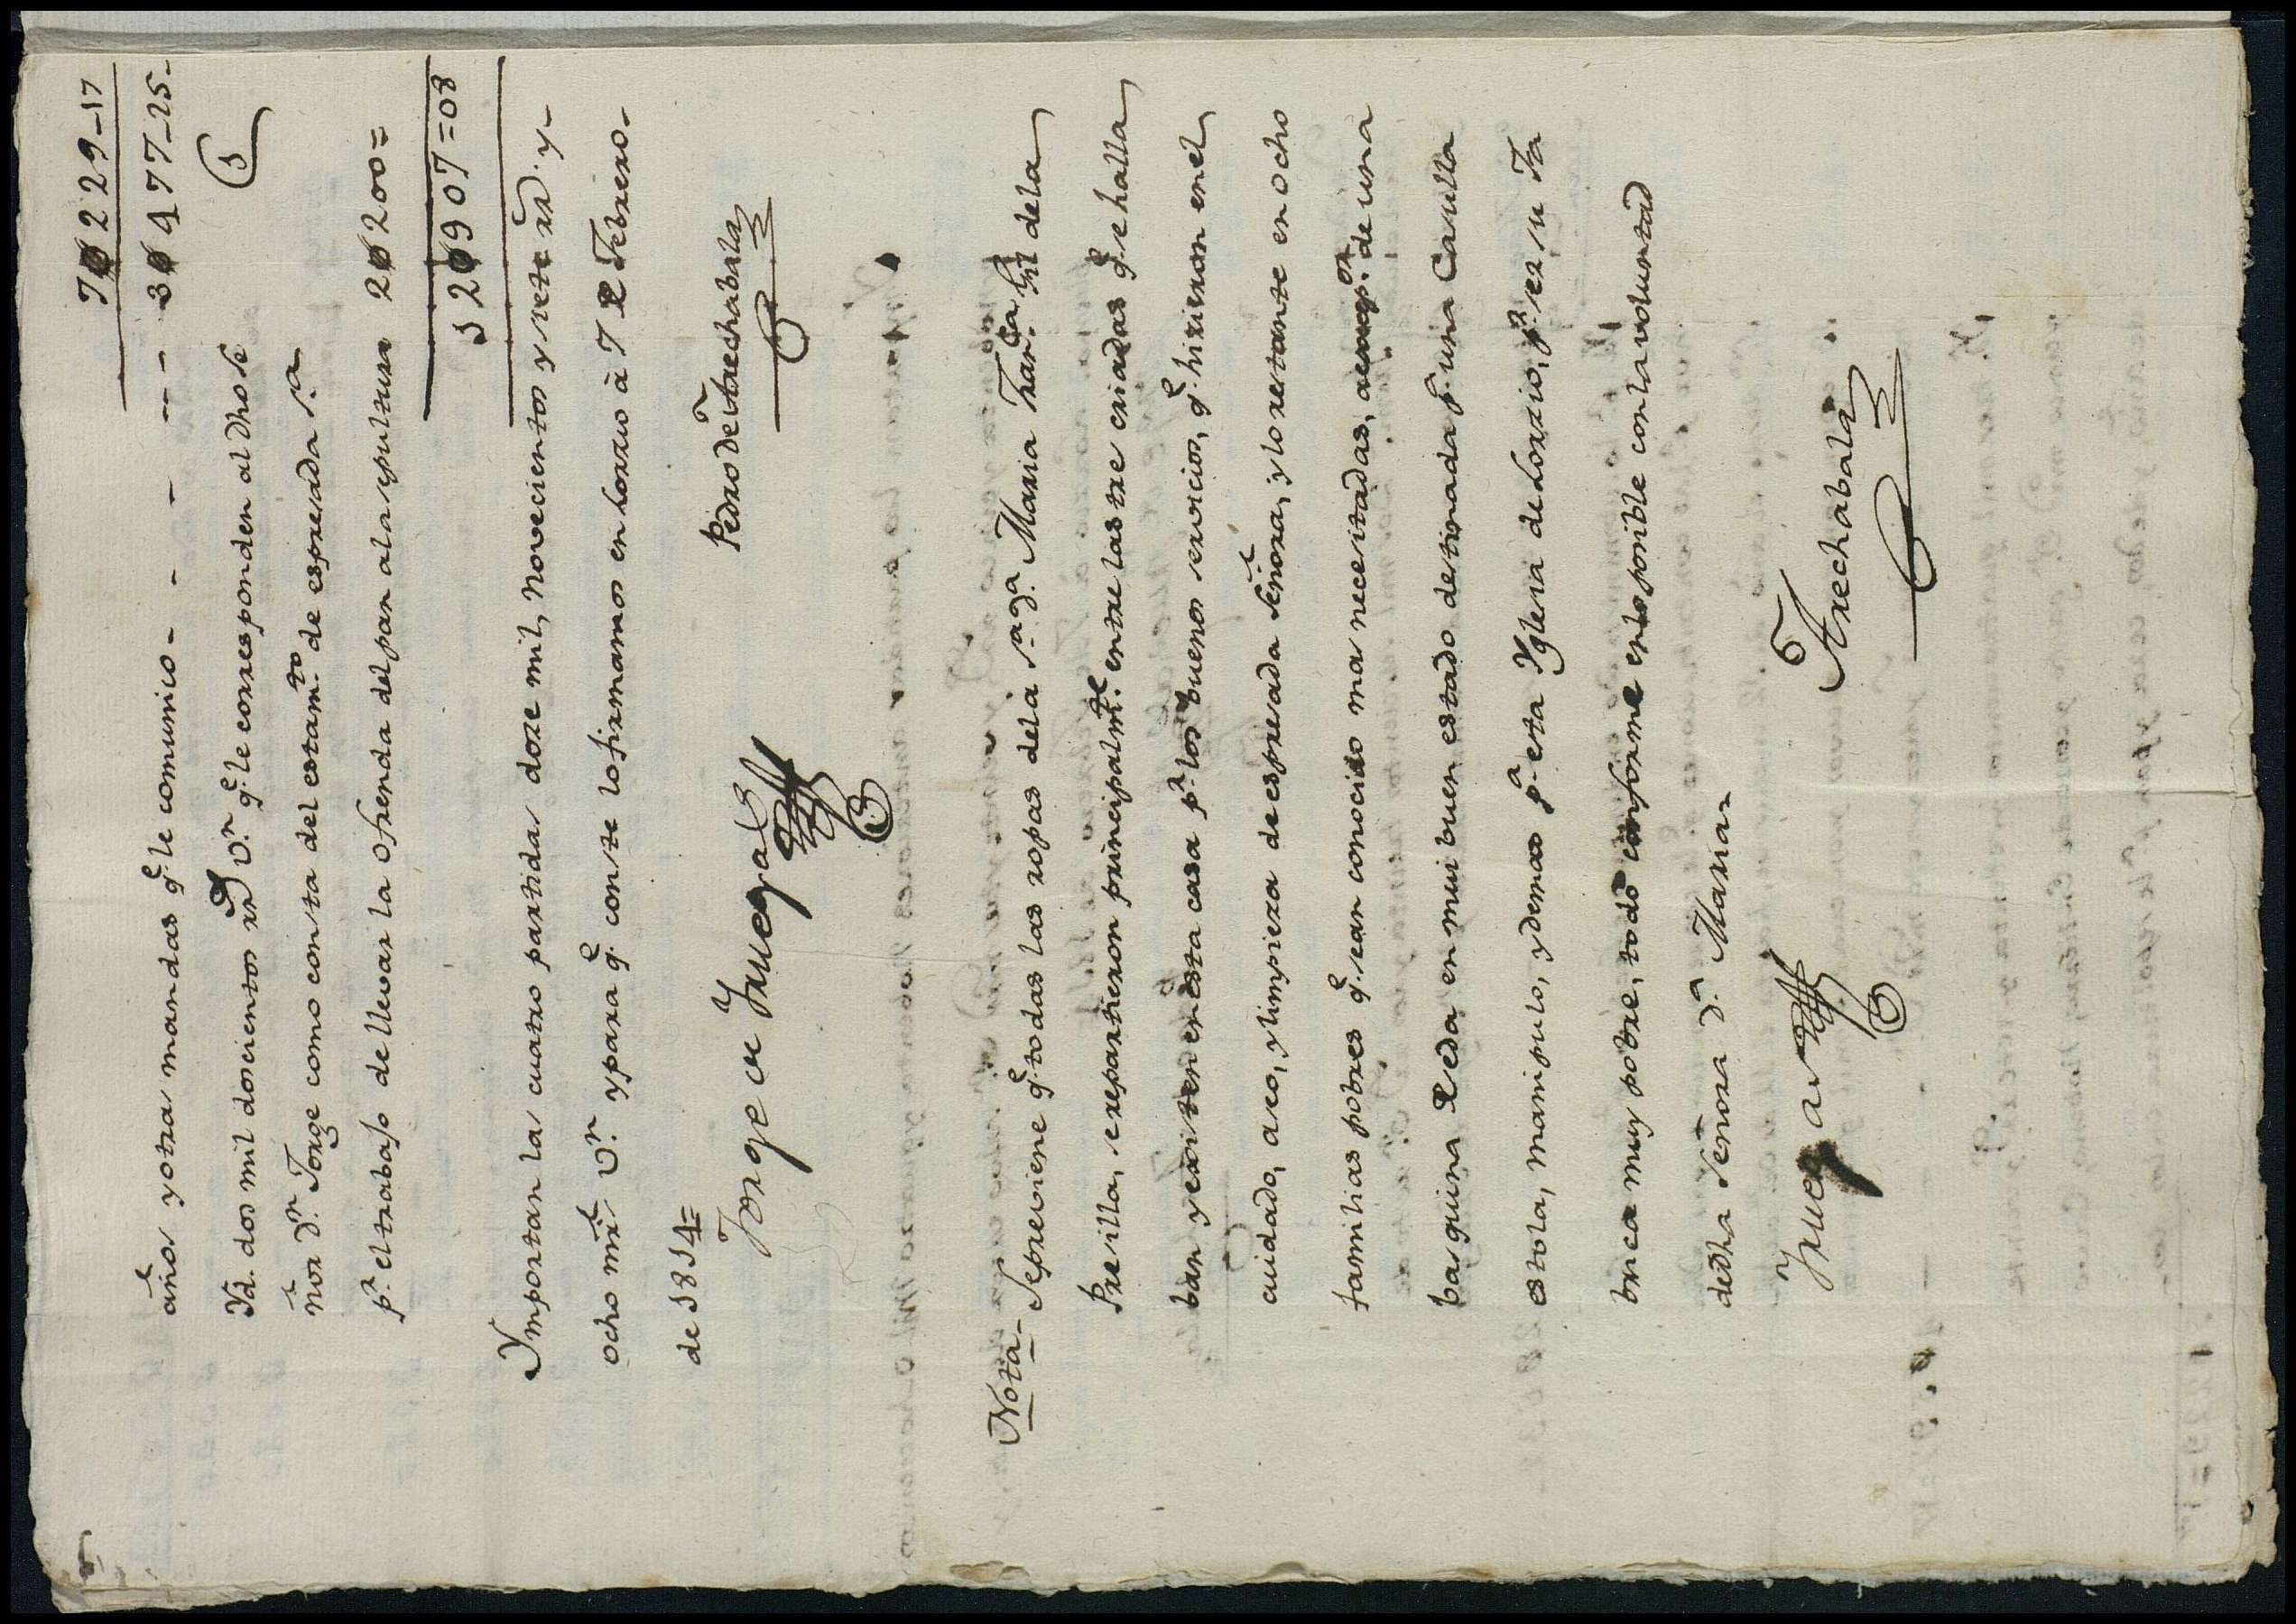 7@229_17
años y otras mandas q.e le comunico - - - - - - 3@477_25_
Yd. dos mil docientos rr.s v.n q.e le corresponden al dho Se
ñor d.n Jorge como consta del estam.to de espresada s.a
p.a el trabajo de llevar la ofrenda del pan ala sepultura 2@200=
12@907=08
Ymportan las cuatro partidas doze mil, novecientos y siete rr.s y_
ocho mrs v.n y para q.e conste lo firmamos en Lorzio à 7 de Febrero_
de 1814=
Jorge de Yruegas
Pedro de Arechabala
Nota_ Se previene q.e todas las ropas dela s.a d.a Maria Fran.ca Gil dela
Presilla, se repartieron principalm.te entre las tre criadas q.e se halla
ban y existen en esta casa p.a los buenos servicios, q.e hizieron en el
cuidado, aseo, y limpieza de espresada Señora, y lo restante en ocho
familias pobres q.e sean conocido mas necesitadas, a de una
basquina de seda en mui buen estado destinada p.a una Casulla
estola, manipulo, y demas p.a esta Yglesia de Lorzio, p.r ser su Fa
brica muy pobre, todo conforme en lo posible con la voluntad
de dha Señora d.a Maria
Yruegas
Arechabala